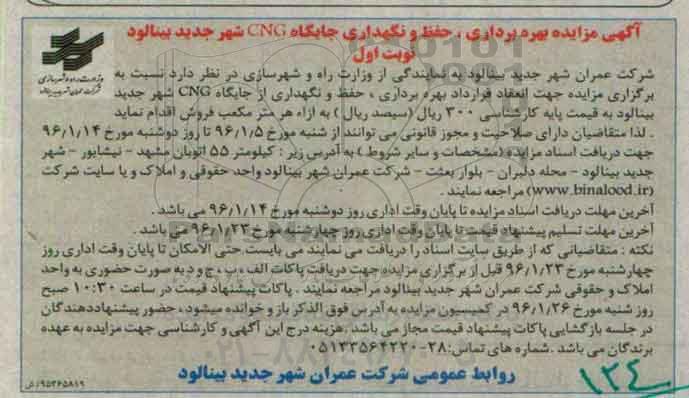 آگهی مزایده بهره برداری ، حفظ و نگهداری جایگاه CNG شهر جدید بینالود
نوبت اول
وزارت راه و شهرسازی
شرکت عمران شهر جدید بینالود
شرکت عمران شهر جدید بینالود به نمایندگی از وزارت راه و شهرسازی در نظر دارد نسبت به
برگزاری مزایده جهت انعقاد قرارداد بهره برداری ، حفظ و نگهداری از جایگاه CNG شهر جدید
بینالود به قیمت پایه کارشناسی ۳۰۰ ریال (سیصد ریال ) به ازاء هر متر مکعب فروش اقدام نماید
. لذا متقاضیان دارای صلاحیت و مجوز قانونی می توانند از شنبه مورخ ۹۶/۱/۵ تا روز دوشنبه مورخ ۹۶/۱/۱۴
جهت دریافت اسناد مزایده (مشخصات و سایر شروط ) به آدرس زیر : کیلومتر ۵۵ اتوبان مشهد - نیشابور - شهر
جدید بینالود - محله دلبران - بلوار بعثت - شرکت عمران شهر بینالود واحد حقوقی و املاک و یا سایت شرکت
(www.binalood.ir) مراجعه نمایند .
آخرین مهلت دریافت اسناد مزایده تا پایان وقت اداری روز دوشنبه مورخ ۹۶/۱/۱۴ می باشد .
آخرین مهلت تسلیم پیشنهاد قیمت تا پایان وقت اداری روز چهارشنبه مورخ ۹۶/۱/۲۳ می باشد .
نکته : متقاضیانی که از طریق سایت اسناد را دریافت می نمایند می بایست حتی الامکان تا پایان وقت اداری روز
چهارشنبه مورخ ۹۶/۱/۲۳ قبل از برگزاری مزایده جهت دریافت پاکات الف ، ب ، ج و د به صورت حضوری به واحد
املاک و حقوقی شرکت عمران شهر جدید بینالود مراجعه نمایند . پاکات پیشنهاد قیمت در ساعت ۱۰:۳۰ صبح
روز شنبه مورخ ۹۶/۱/۲۶ در کمیسیون مزایده به آدرس فوق الذکر باز و خوانده میشود ، حضور پیشنهاددهندگان
در جلسه بازگشایی پاکات پیشنهاد قیمت مجاز می باشد . هزینه درج این آگهی و کارشناسی جهت مزایده به عهده
برندگان می باشد . شماره های تماس: ۲۸-۰۵۱۳۳۵۶۴۲۲۰
روابط عمومی شرکت عمران شهر جدید بینالود
۹۵۲۶۵۸۱۹/ش
۱۳۴